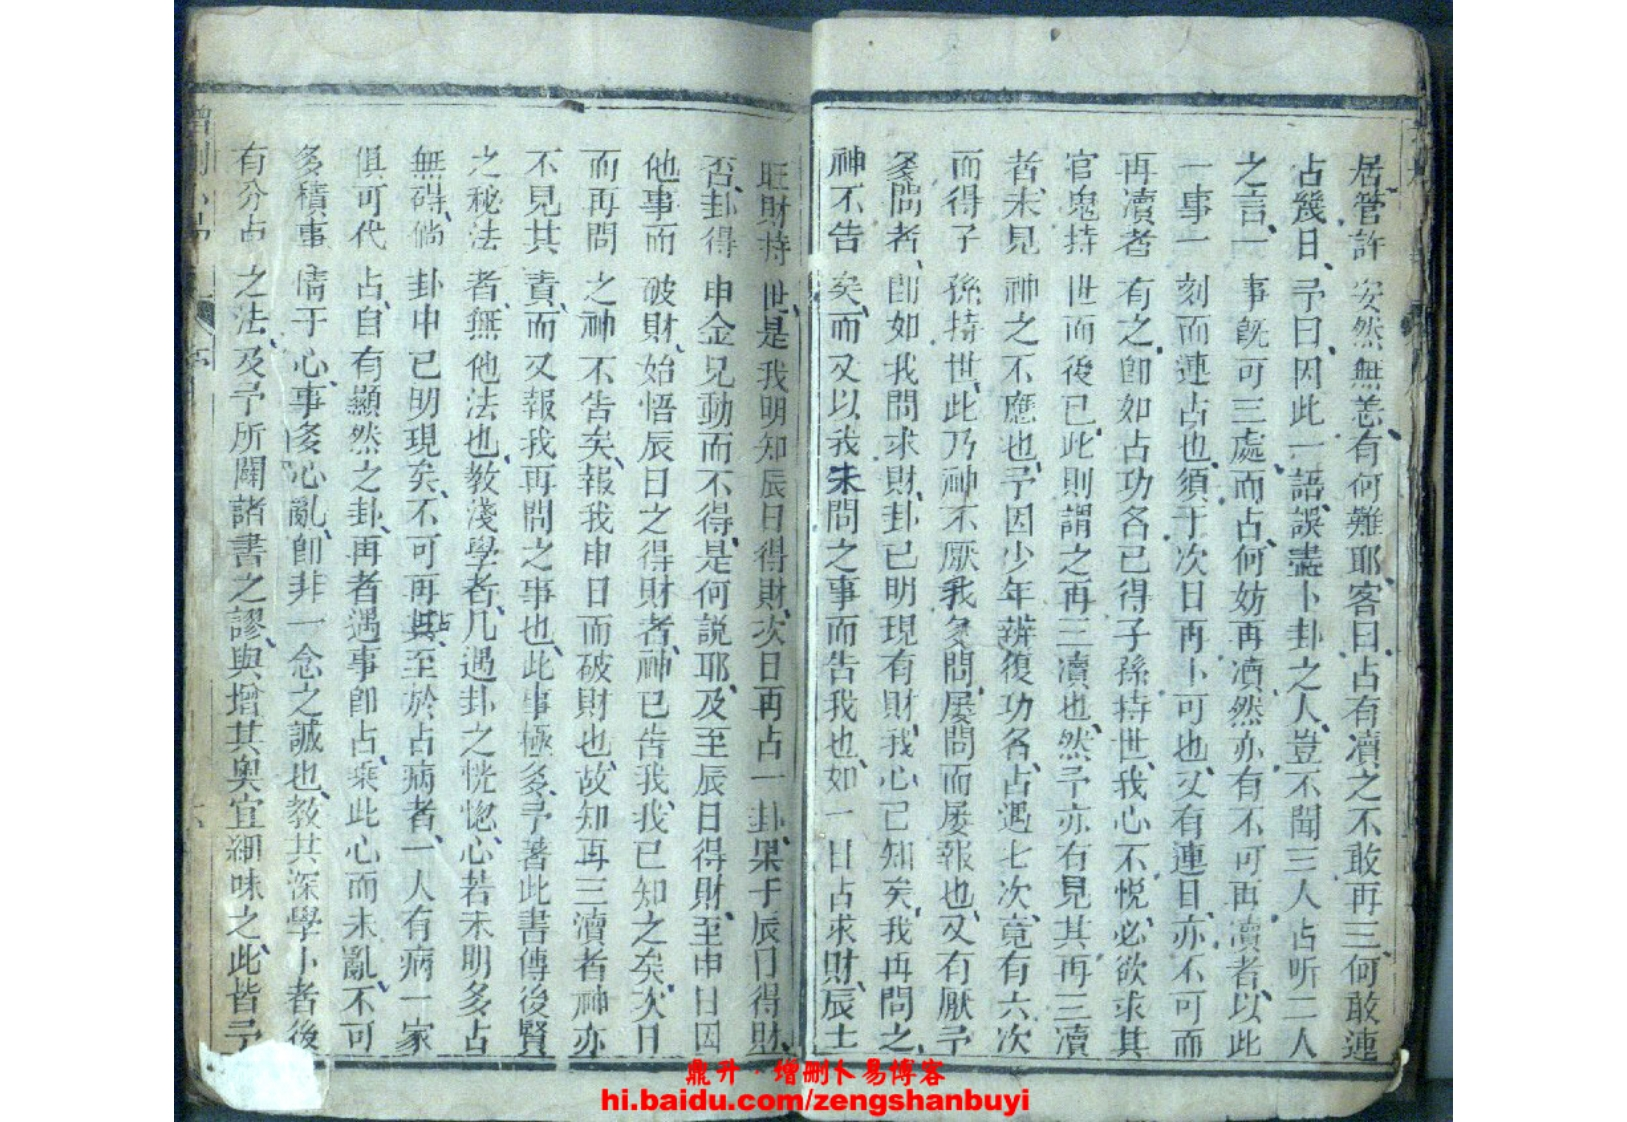 居管許安然無恙、有何難耶、客曰、占有瀆之不敢再三、何敢連
占幾日、予曰、因此一語、誤盡卜卦之人、豈不聞三人占听二人
之言、一事旣可三處而占、何妨再瀆、然亦有不可再瀆者、以此
一事一刻而連占也、須于次日再卜可也、又有連日、亦不可而
再瀆者有之、卽如占功名已得子孫持世、我心不悅、必欲求其
官鬼持世而後已、此則謂之再三瀆也、然予亦有見其再三瀆
者、未見神之不應也、予因少年辨復功名、占過七次、竟有六次
而得子孫持世、此乃神不厭我多問、屡問而屡報也、又有厭予
多問者、卽如我問求財、卦已明現有財、我心已知矣、我再問之、
神不告矣、而又以我未問之事而告我也、如一日占求財、辰土
旺財持世、是我明知辰日得財、次日再占一卦、果于辰日得財、
否、卦得申金兄動而不得、是何説耶、及至辰日得財、至申日因
他事而破財、始悟辰日之得財者、神已告我、我已知之矣、次日
而再問之神不告矣、報我申日而破財也、故知再三瀆者神亦
不見其責、而又報我再問之事也、此事極多、予著此書傳後賢
之秘法者、無他法也、教淺學者、凡遇卦之恍惚、心若未明多占
無碍、倘卦中已明現矣、不可再占、至於占病者、一人有病一家
俱可代占、自有顯然之卦、再者遇事卽占、乘此心而未亂、不可
多積事情于心、事多心亂、卽非一念之誠也、教其深學卜者後
有分占之法、及予所闢諸書之謬、與增其奥宜細味之、此皆予
增刪卜易
鼎升·增删卜易博客
hi.baidu.com/zengshanbuyi